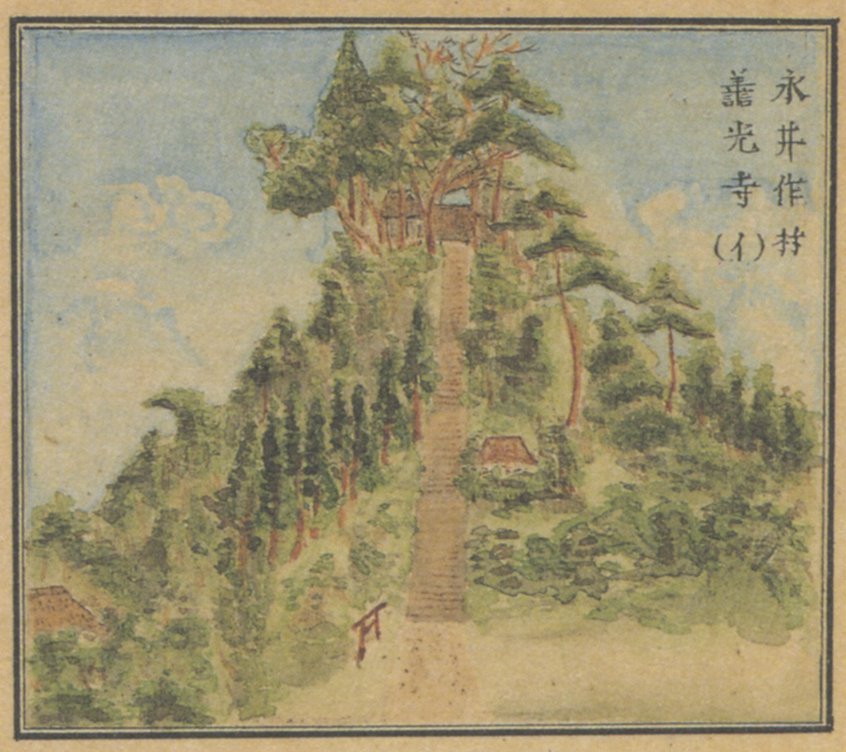 永井作村
善光寺
(イ)